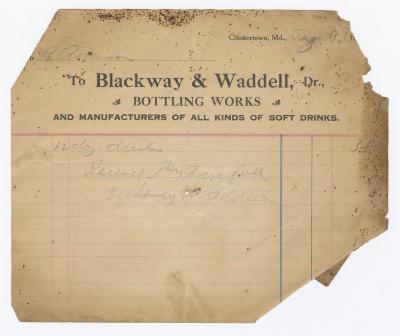 Chestertown, Md., Aug 9
To Blackway & Waddell, Dr.,
BOTTLING WORKS
AND MANUFACTURERS OF ALL KINDS OF SOFT DRINKS.
12 doz. drinks
Received Payt in full
Blackway & Waddell